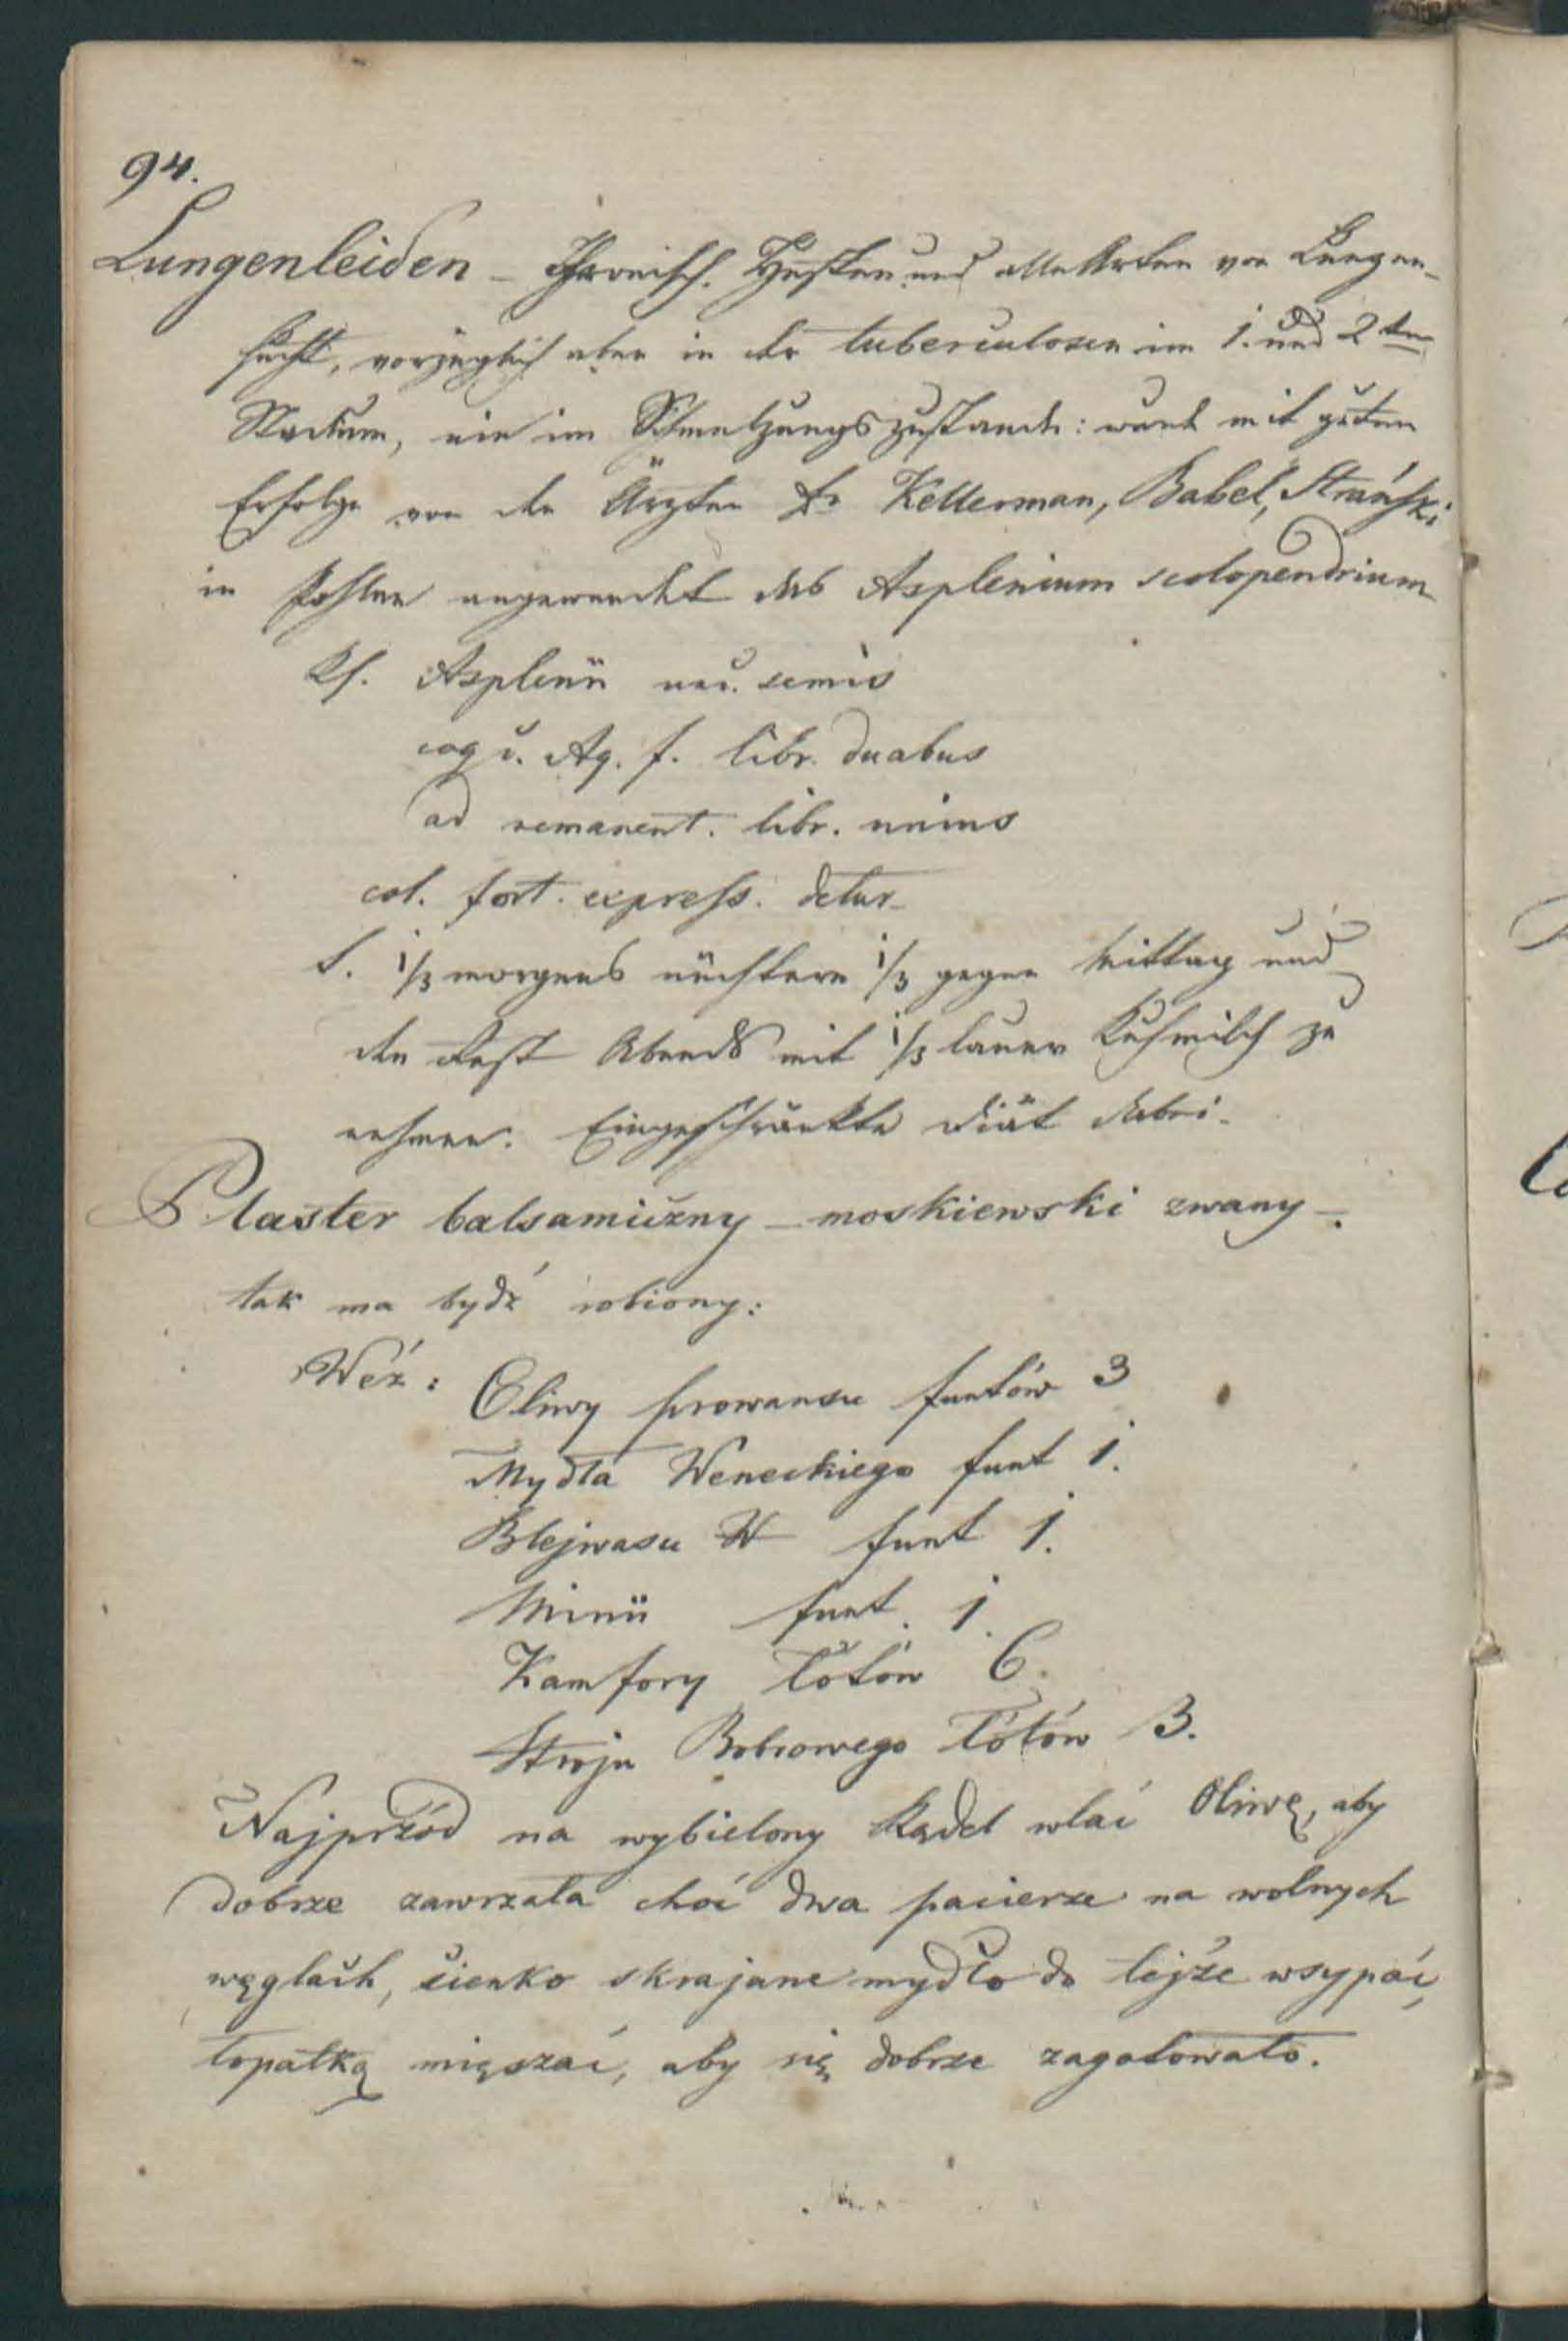 94.
Lungenleiden – Chronisch. Husten und alle Arten von Lungen-
sucht, vorzüglich aber in der tuberculosen im 1. und 2ten
Stadium, nie im Schmelzungszustande: wurde mit gutem
Erfolge von den Ärzten Dr Kellerman, Babel, Strański
in Pohlen angewendet das Asplenium scolopendrium
Rf. Asplenii unc. semis
coqu. Aq. f. libr. duabus
ad remanent. libr. unius
col. fort. express. detur
S. 1/3 morgens nüchtern 1/3 gegen Mittag und
den Rest Abends mit 1/3 lauer Kuhmilch zu
nehmen. Eingeschränkte Diät dabei.
Plaster balsamiczny – moskiewski zwany –.
tak ma bydź robiony:
Weź: Oliwy prowansu funtów 3
Mydła Weneckiego funt 1.
Blejwasu funt 1.
Minii funt. 1.
Kamfory łótów 6.
Stroju Bobrowego łótów 3.
Najprzód na wybielony Kądel wlać Oliwę, aby
dobrze zawrzała choć dwa pacierze na wolnych
węglach, cienko skrajane mydło do tejże wsypać,
łopatką mięszać, aby się dobrze zagotowało.